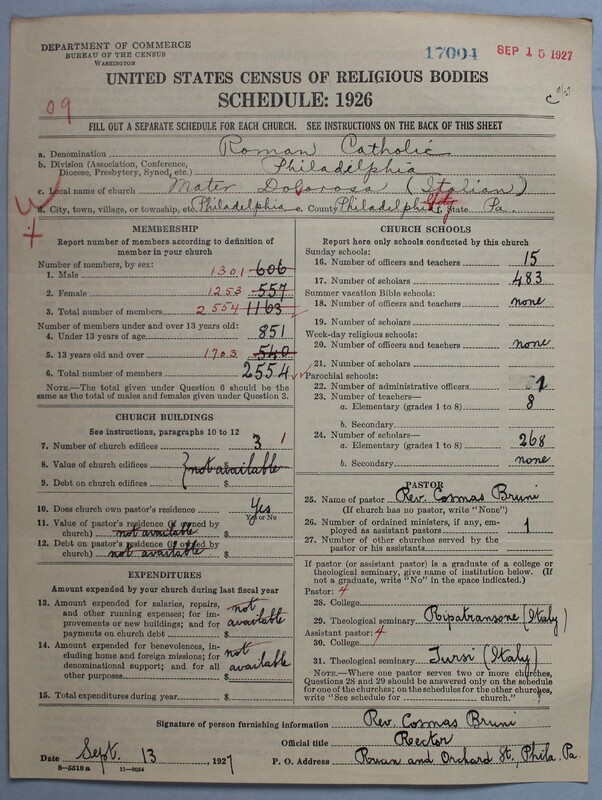 DEPARTMENT OF COMMERCE
BUREAU OF THE CENSUS
WASHINGTON
17004 SEP 15 1927
UNITED STATES CENSUS OF RELIGIOUS BODIES
SCHEDULE: 1926
09
FILL OUT A SEPARATE SCHEDULE FOR EACH CHURCH. SEE INSTRUCTIONS ON THE BACK OF THIS SHEET
a. Denomination Roman Catholic
b. Division (Association, Conference, Diocese, Presbytery, Synod, etc.) Philadelphia
c. Local name of church Mater Dolorosa (Italian)
d. City, town, village, or township, etc. Philadelphia e. County Philadelphia f. State Pa.
MEMBERSHIP
Report number of members according to definition of
member in your church
Number of members, by sex:
1. Male 1301 606
2. Female 1253 557
3. Total number of members 2554 1163
Number of members under and over 13 years old:
4. Under 13 years of age 851
5. 13 years old and over 1703 540
6. Total number of members 2554
NOTE.—The total given under Question 6 should be
same as the total of males and females given under Question 3.
CHURCH BUILDINGS
See instructions, paragraphs 10 to 12
7. Number of church edifices 3 1
8. Value of church edifices $ not available
9. Debt on church edifices $
10. Does church own pastor's residence Yes
Yes or No
11. Value of pastor's residence (if owned by
church) not available $
12. Debt on pastor's residence (if owned by
church) not available $
EXPENDITURES
Amount expended by your church during last fiscal year
13. Amount expended for salaries, repairs,
and other running expenses; for im-
provements or new buildings; and for
payments on church debt $ not available
14. Amount expended for benevolences, in-
cluding home and foreign missions; for
denominational support; and for all
other purposes $ not available
15. Total expenditures during year $
CHURCH SCHOOLS
Report here only schools conducted by this church
Sunday schools:
16. Number of officers and teachers 15
17. Number of scholars 483
Summer vacation Bible schools:
18. Number of officers and teachers none
19. Number of scholars
Week-day religious schools:
20. Number of officers and teachers none
21. Number of scholars
Parochial schools:
22. Number of administrative officers 1
23. Number of teachers—
a. Elementary (grades 1 to 8) 8
b. Secondary
24. Number of scholars—
a. Elementary (grades 1 to 8) 268
b. Secondary none
PASTOR
25. Name of pastor Rev. Cosmas Bruni
(If church has no pastor, write "None")
26. Number of ordained ministers, if any, em-
ployed as assistant pastors 1
27. Number of other churches served by the
pastor or his assistants
If pastor (or assistant pastor) is a graduate of a college or
theological seminary, give name of institution below. (If
not a graduate, write "No" in the space indicated.)
Pastor: 4
28. College
29. Theological seminary Ripatransone (Italy)
Assistant pastor: 4
30. College
31. Theological seminary Tursi (Italy)
NOTE.—Where one pastor serves two or more churches,
Questions 28 and 29 should be answered only on the schedule
for one of the churches; on the schedules for the other churches,
write "See schedule for church.")
Signature of person furnishing information Rev. Cosmas Bruni
Official title Rector
Date Sept. 13, 1927 P. O. Address Rowan and Orchard St., Phila. Pa.
8—5518a 11—8054